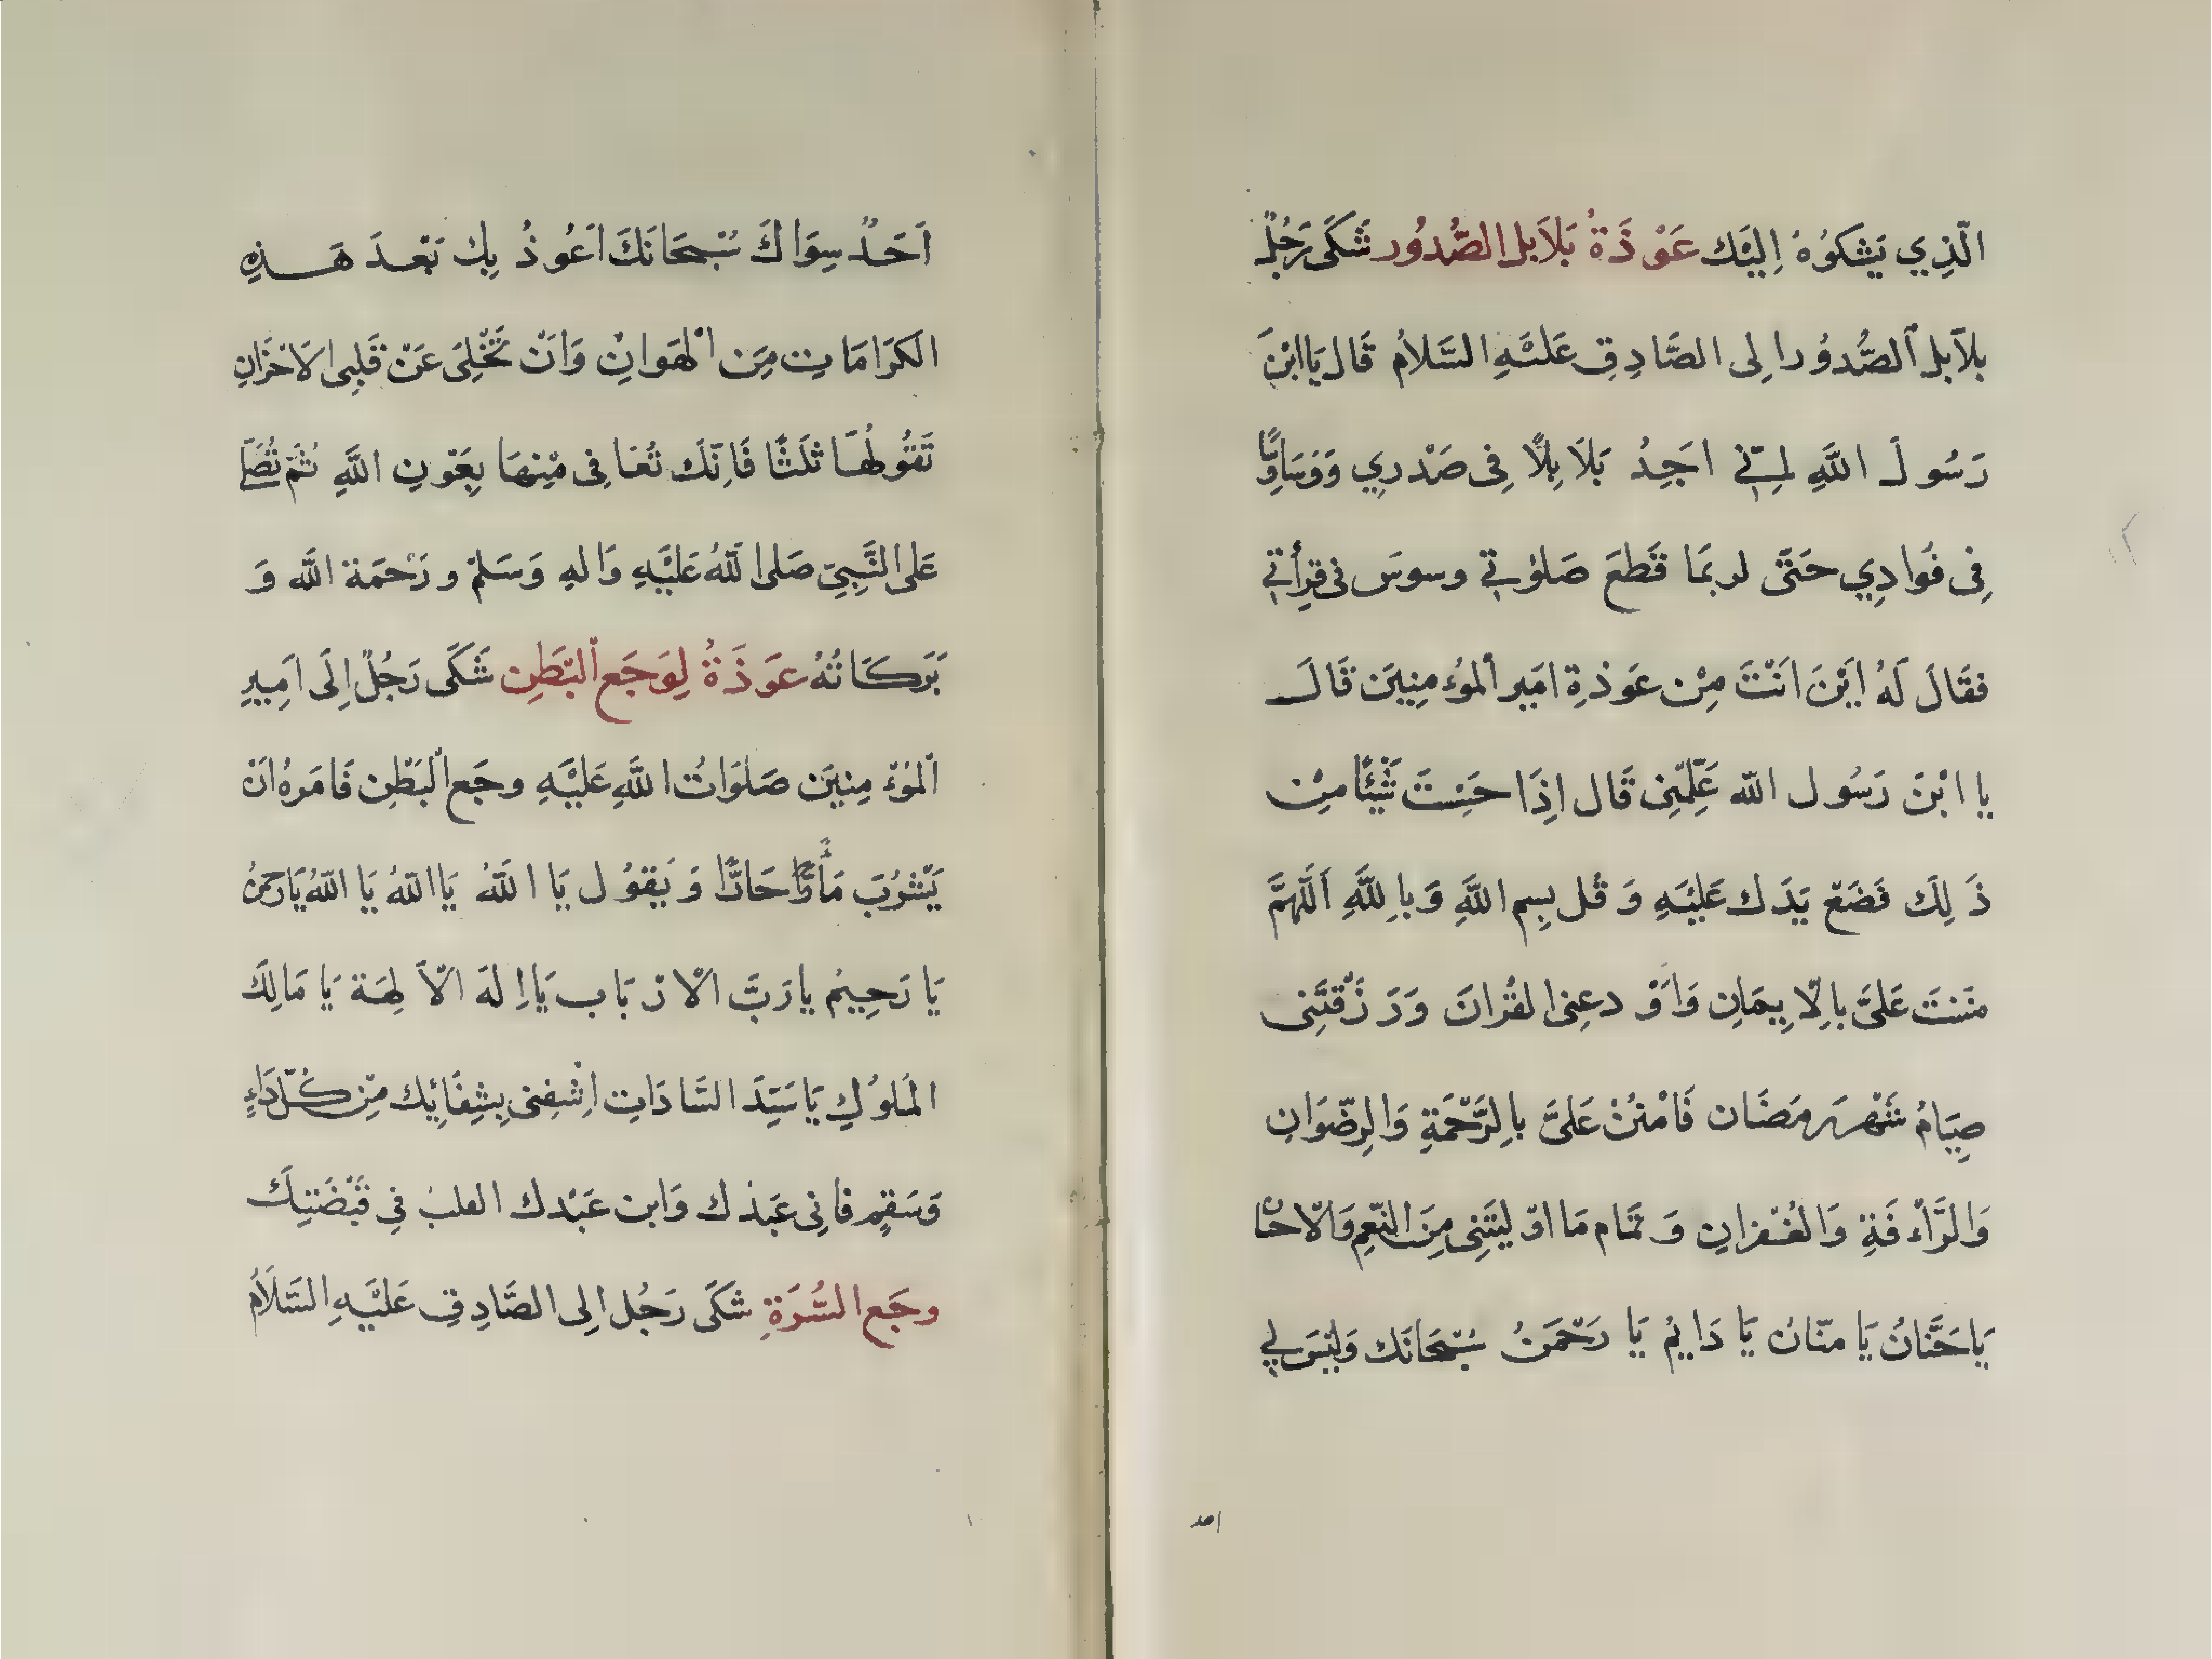 الَّذِي يَشكوُهُ اِلَيْك عَوْذَةُ بَلاَبل الصُّدُور شَكَى رَجُلٌ
بلآبل اَلصُّدُور اِلى الصَّادِقِ عَلَيْهِ السَّلاَمُ قَال يَا ابْنَ
رَسُولَ اللَّهِ اِنّي اَجِدُ بَلاَبِلاً فِى صَدْرِي وَوَسَاوِسًا
فِى فُوادِي حَتىَّ لربمَا قَطعَ صَلوٰتي وسوسَ فى قِرأتي
فقَالَ لَهُ اَيْنَ اَنْتَ مِنْ عَوذةِ امَيرِ اَلموُءمِنِيَن قَالَ
يا ابْنَ رَسُول اللّه عَلِّمْنِى قَال اِذَا حَسِستَ شَيْئًا مِنْ
ذَلِكَ فَضَعْ يَدَك عَلَيْهِ وَ قُل بِسِم اللَّهِ وَ باِللَّهِ اَللَّهُمَّ
مننتَ عَلىَّ باِلْاِيِمَانِ وَاَوْدعِنى القُرانَ وَرَزَقْتَنِى
صِيَامُ شَهْرَ رمَضَان فَامْنُنْ عَلىَّ باِلرَّحْمَةِ وَالرِضّوَانِ
وَالرَّأْفَةِ وَالغُفْرانِ وَ تمَام مَا اوْليْتَنِى مِنَ النّعِم وَالْاحْسَا
يَا حَنَّانُ يَا منّانُ يَا دَايمُ يَا رَحْمَنُ سُبْحَانَك وَليْسَ لِي
احد
اَحَدٌ سِوَاكَ سُبْحَانَكَ اَعُوذُ بِكَ بَعْدَ هَذِهِ
الكرَامَاتِ مِنَ اْلهَوانِ وَاَنْ تُخْلِىَ عَنْ قَلِبى الاَحْزَانِ
تَقوُلُهَا ثلَثًا فَاِنّكَ تُعَافى مِنْهَا بِعَوْنِ اللَّهِ ثُمَّ تُصَلِّ
عَلى النَّبِيِّ صَلى اللّهُ عَلَيْهِ وَالِهِ وَسَلمّ ورَحْمَة اللَّه وَ
بَرَكَاتُهُ عَوذَةُ لِوَجَع اْلبَطِن شَكَى رَجُلٌ اِلَى اَمِيرِ
اْلموُءْمِنِيَن صَلَوَاتُ اللَّهِ عَلَيْهِ وجَع اْلبَطْنِ فَامَرهُ اَنْ
يَشْرُبَ مَأءً حَارًّا وَ يَقوُل يَا اللّهُ يَا اللّهُ يَا اللّهُ يَا رَحمنُ
يَا رَحِيمُ يا رَبَّ الْارْبَاب يَا اِلهَ الْآلِهَة يَا مَالِكَ
المَلوُكِ يَا سَيّدَ السَّادَاتِ اِشْفِنى بِشِفَائِك مِنْ كُلّ دَاءٍ
وَسَقِم فانِى عَبدُك وَابن عَبْدك اتقلبُ فِى قَبْضَتِكَ
وجَع السُّرَةِ شَكَى رَجُل اِلى الصَّادِقِ عَلَيْهِ السَّلاَمُ